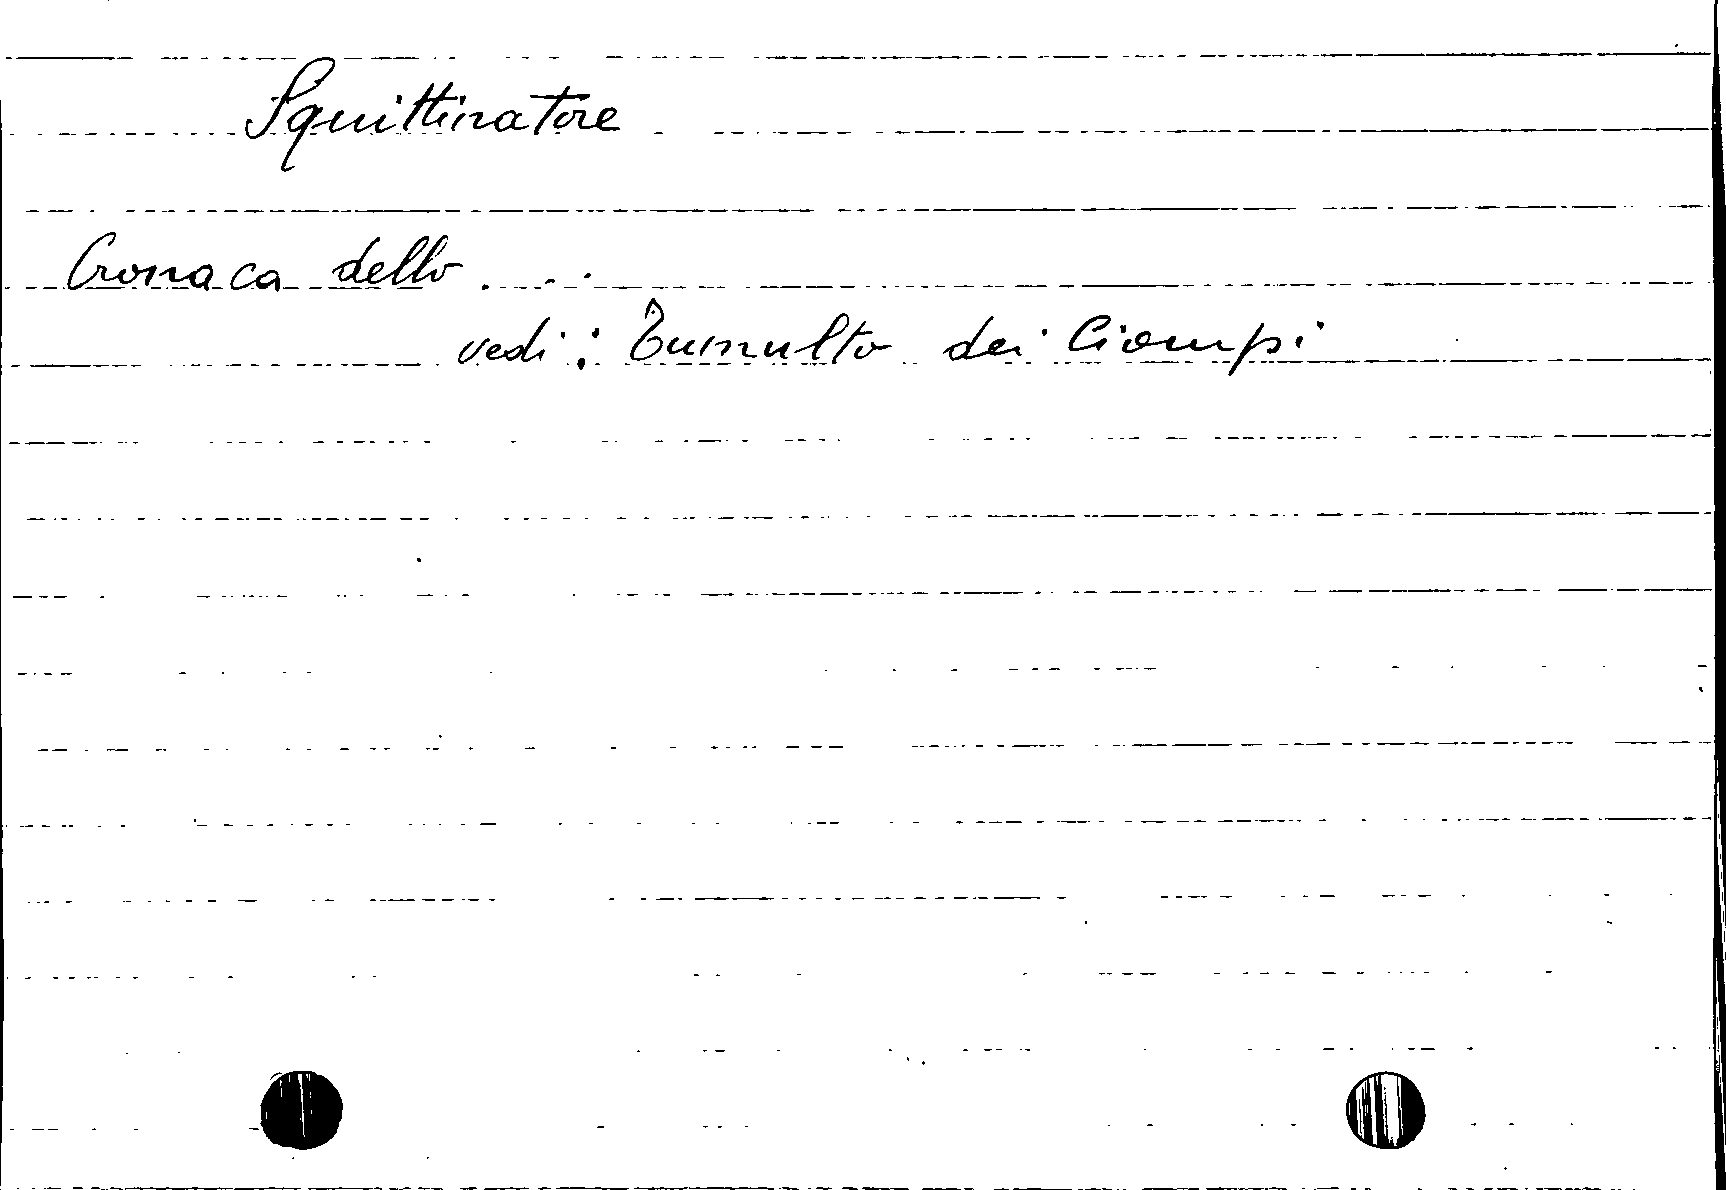 Squittinatore
Cronaca dello ...
vedi: Tumulto dei Ciompi